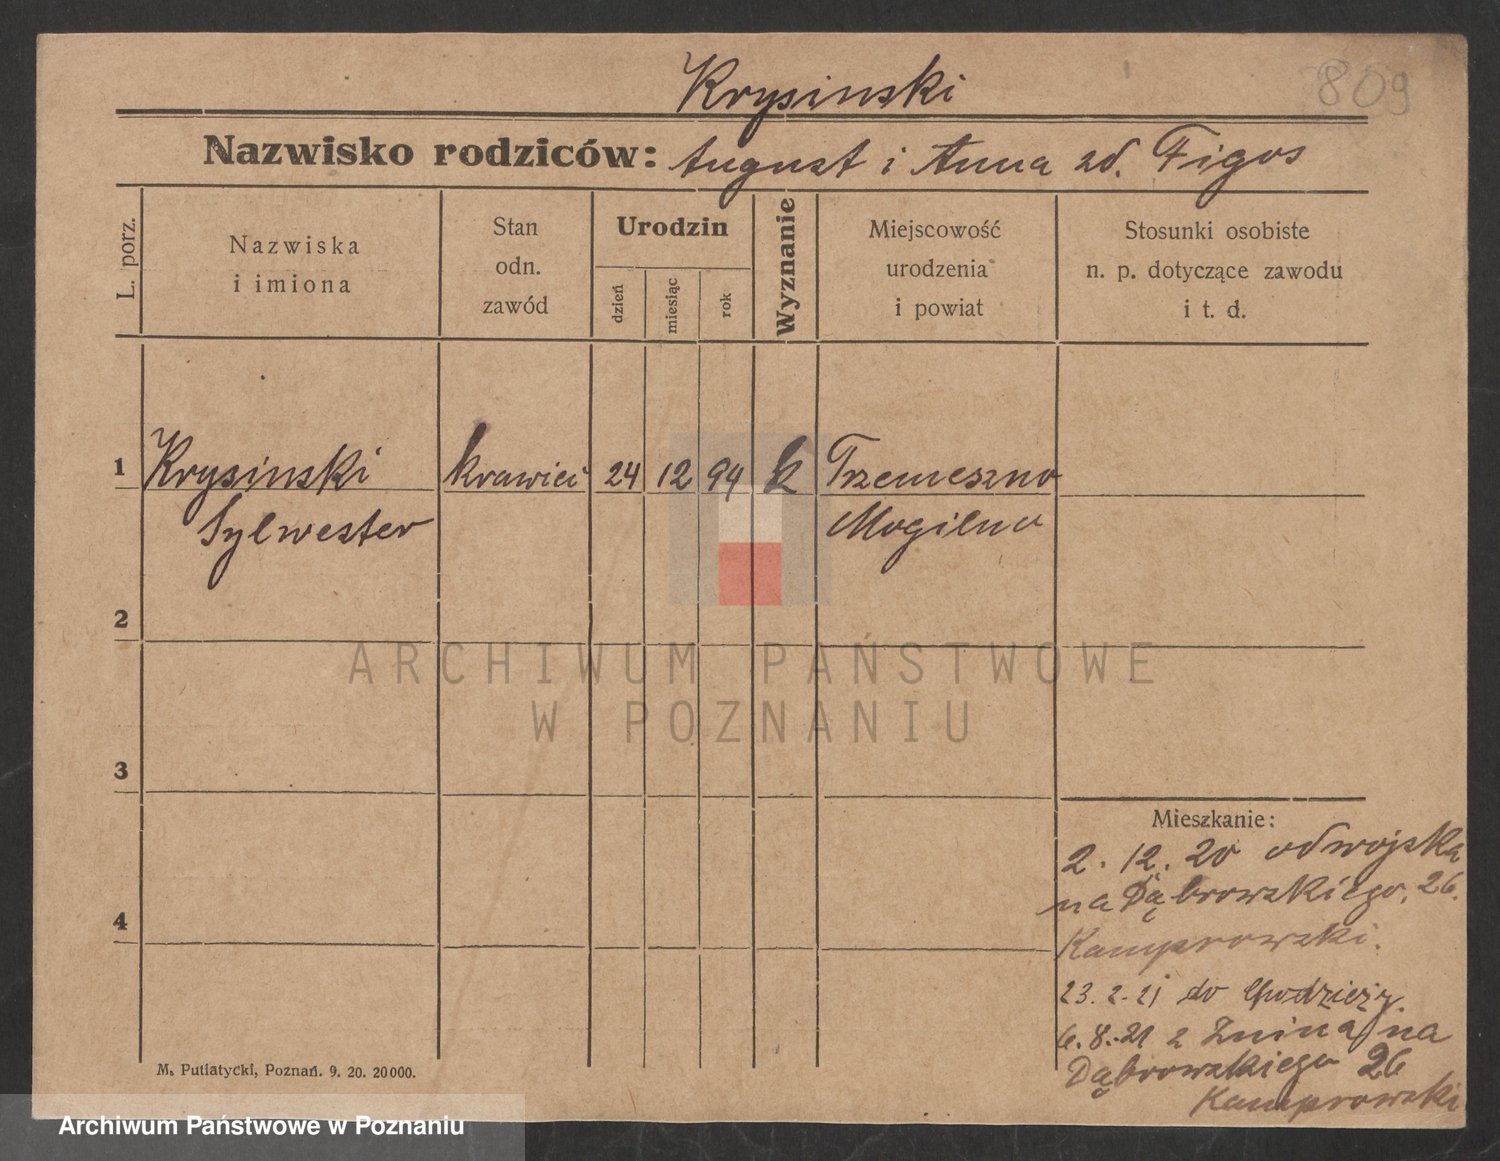 809
Krysinski
Nazwisko rodziców: August i Anna zd. Figos
L. porz.
Nazwiska i imiona
Stan odn. zawód
Urodzin
dzień
miesiąc
rok
Wyznanie
Miejscowość urodzenia i powiat
Stosunki osobiste n. p. dotyczące zawodu i t. d.
1 Krysinski krawiec 24 12 94 k Trzemeszno
Sylwester Mogilno
2
3
4
ARCHIWUM PAŃSTWOWE
W POZNANIU
Mieszkanie:
2. 12. 20 od wojska
na Dąbrowskiego, 26.
Kamprowski.
23. 2. 21 do Chodzieży.
6. 8. 21 z Żnina na
Dąbrowskiego 26
Kamprowski
M. Putiatycki, Poznań. 9. 20. 20000.
Archiwum Państwowe w Poznaniu